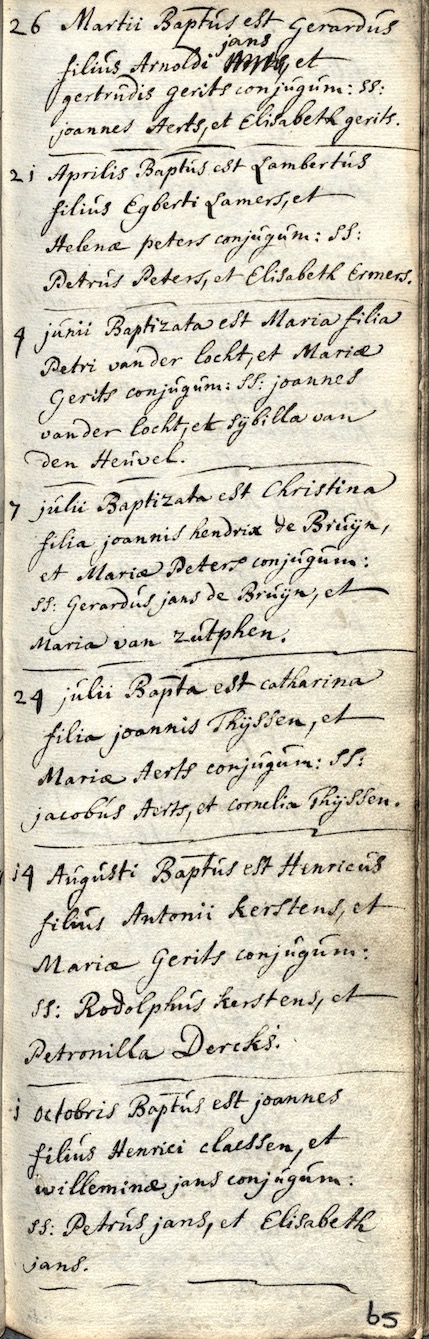 26 Martii Baptus est Gerardus
jans
filius Arnoldi et
gertrudis gerits conjugum: ss:
joannes Aerts, et Elisabeth gerits.
21 Aprilis Baptus est Lambertus
filius Egberti Lamers, et
Helenæ peters conjugum: ss:
Petrus Peters, et Elisabeth Ermers.
4 junii Baptizata est Maria filia
Petri vander locht, et Mariæ
Gerits conjugum: ss: joannes
vander locht, et sÿbilla van
den Heuvel.
7 julii Baptizata est Christina
filia joannis hendrix de Bruÿn,
et Mariæ Peters conjugum:
ss: Gerardus jans de Bruÿn, et
Maria van zutphen.
24 julii Bapta est catharina
filia joannis Thÿssen, et
Mariæ Aerts conjugum: ss:
jacobus Aerts, et cornelia Thÿssen.
14 Augusti Baptus est Henricus
filius Antonii kerstens, et
Mariæ Gerits conjugum:
ss: Rodolphus kerstens, et
Petronilla Dercks.
1 octobris Baptus est joannes
filius Henrici claessen, et
willeminæ jans conjugum:
ss: Petrus jans, et Elisabeth
jans.
65